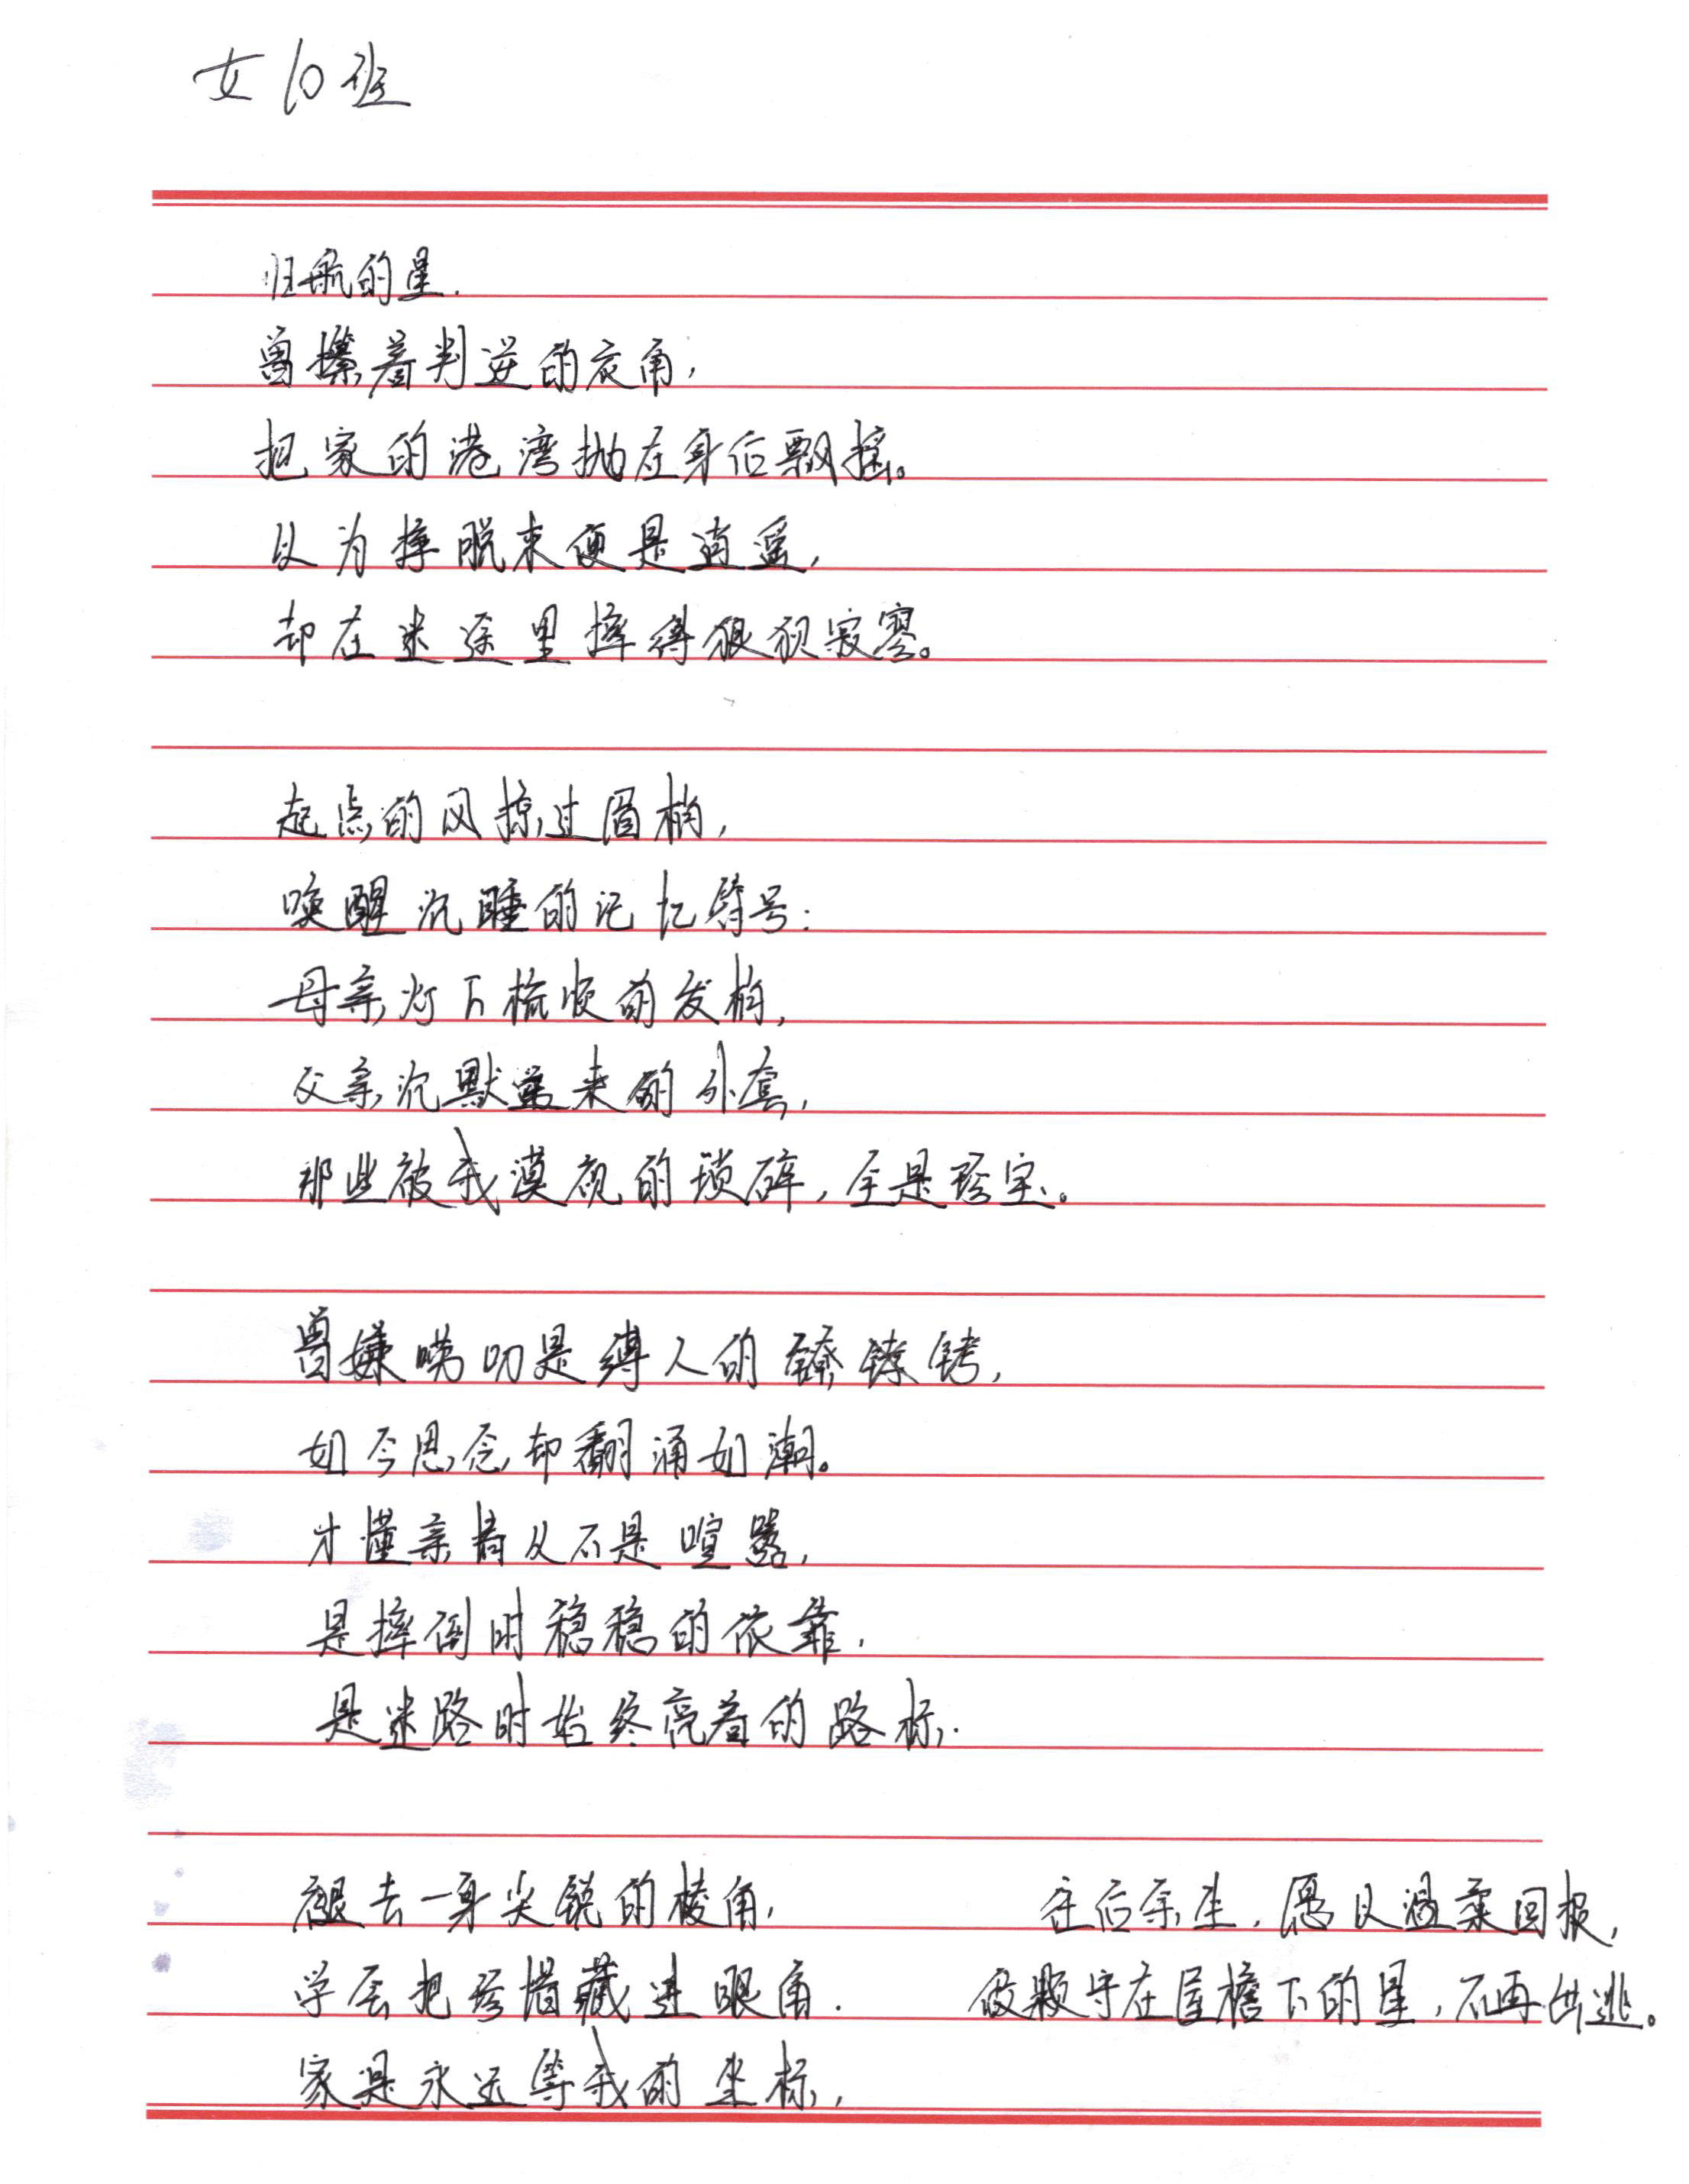 女10班
归航的星.
曾攥着判逆的衣角,
把家的港湾抛在身后飘摇。
以为挣脱束便是逍遥,
却在迷途里摔得狼狈寂寥。
起点的风掠过眉梢,
唤醒沉睡的记忆符号:
母亲灯下梳顺的发梢,
父亲沉默 来的外套,
那些被我漠视的琐碎,全是珍宝。
曾嫌唠叨是缚人的 镣铐,
如今思念却翻涌如潮。
才懂亲情从不是喧嚣,
是摔倒时稳稳的依靠,
是迷路时始终亮着的路标.
褪去一身尖锐的棱角,
学会把珍惜藏进眼角.
家是永远等我的坐标,
往后余生,愿以温柔回报,
做颗守在屋檐下的星,不再出逃。